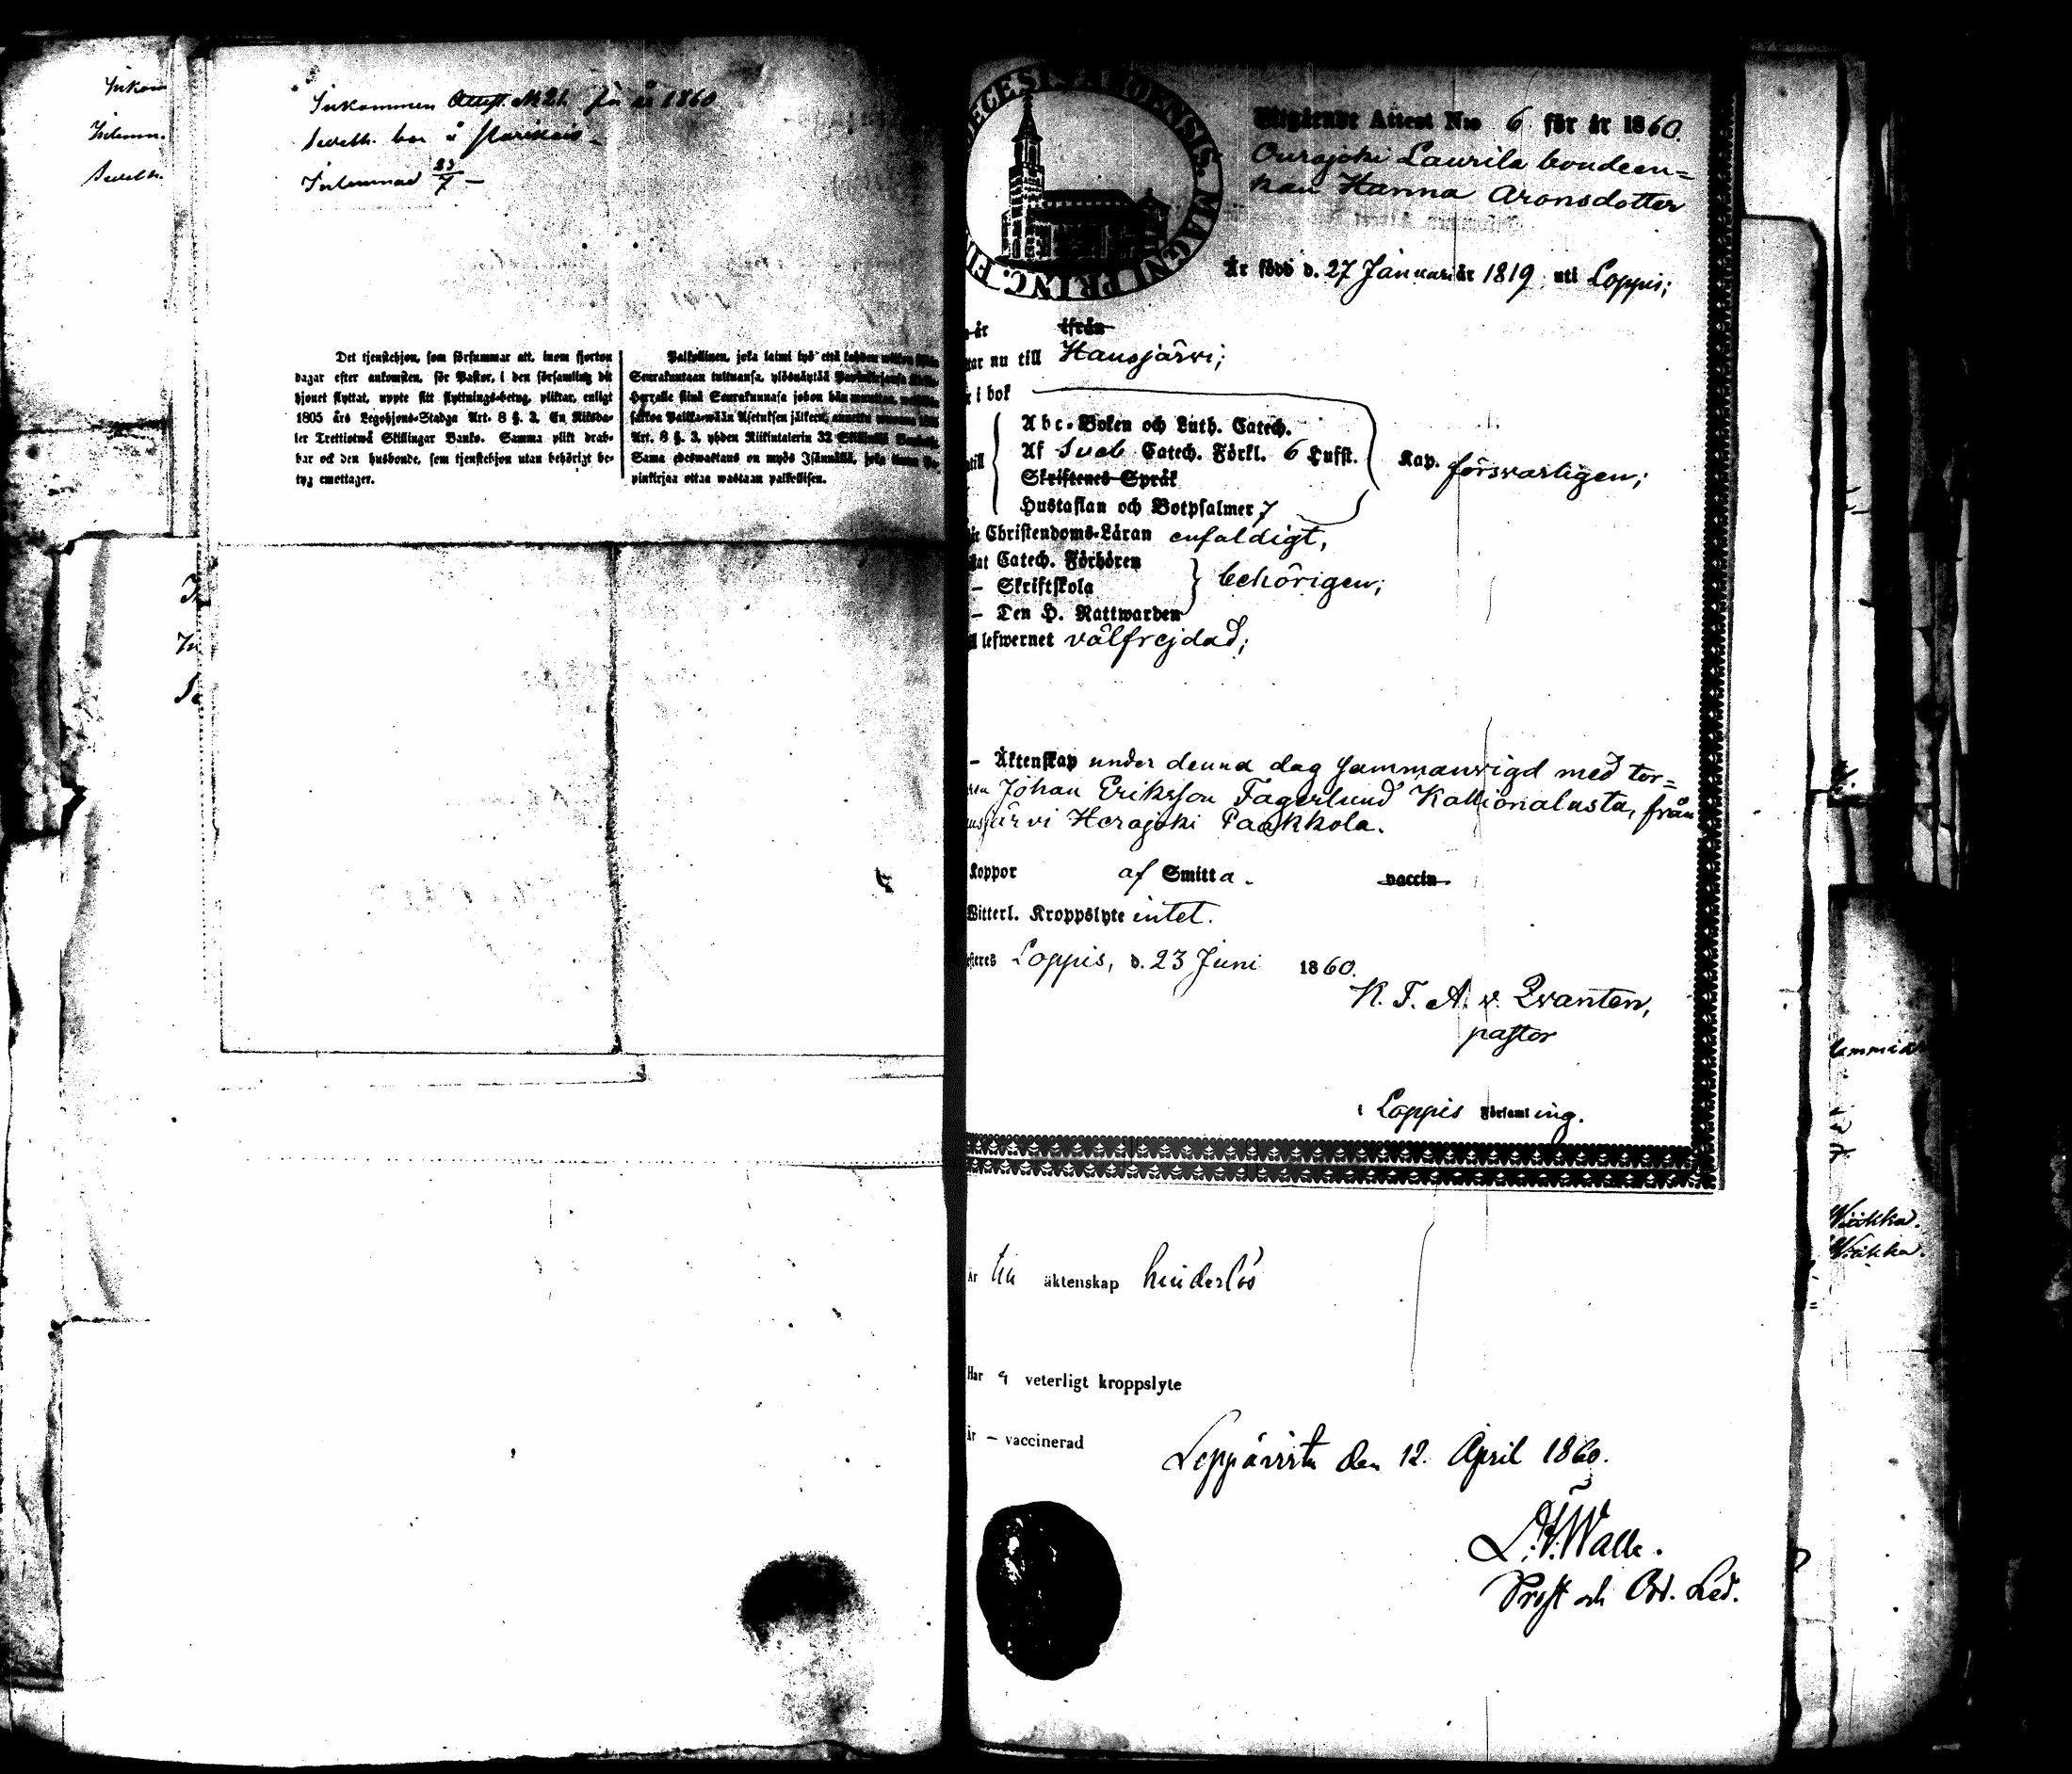 Inkommen Attest. N 21. för år 1860
Inlemnad 23/7 —
Det tjenstehjon, som försummar att, inom fjorton
dagar efter ankomsten, för Pastor, i den församling dit
hjonet flyttat, uppte sitt flyttnings-betyg, pliktar, enligt
1805 års Legohjons-Stadga Art. 8 §. 3. En Riksda-
ler Trettiotwå Skillingar Banko. Samma plikt drab-
bar ock den husbonde, som tjenstehjon utan behörigt be-
tyg emottager.
Palkollinen, joka laimi lyö että kahden wiikon
Seurakuntaan tultuansa, ylösnäyttää
Herralle siinä Seurakunnasa johon hän muuttaa,
sakkoa Palkkawään Asetuksen jälkeen, annettu wuonna 1805
Art. 8 §. 3. yhden Riikintalerin 32 Skillinkiä Bankos.
Sama edeswastaus on myös Isännällä, joka ilman
pinkirjaa ottaa wastaan palkollisen.
DIECESIS ABOENSIS. MAGNI PRINC. FIN
Utgående Attest N:o 6 för år 1860.
Ourajoki Laurila bondeen-
kan Hanna Aronsdotter
Är född d. 27 Januari år 1819 uti Loppis;
år ifrån
nu till Hausjärvi;
i bok
Abc-Boken och Luth. Catech.
Af Sveb Catech. Förkl. 6 Hufst. Kap. försvarligen;
Skriftenes Språk
Hustaflan och Botpsalmer 7
Christendoms-Läran enfaldigt,
Catech. Förhören
– Skriftskola behörigen;
– Den H. Nattwarden
lefwernet välfrejdad;
– Äktenskap under denna dag sammanvigd med tor-
Johan Eriksson Fagerlund Kallionalusta, från
järvi Herajoki Paakkola.
Koppor af Smitta. vaccin
Witterl. Kroppslyte intet.
Loppis, d. 23 Juni 1860.
K. F. A. v. Qvanten,
pastor
i Loppis Församling.
Är till äktenskap hinderlös
Har ej veterligt kroppslyte
Är – vaccinerad
Leppävirta den 12. April 1860.
Prost och
Wäkka.
Wäkka.